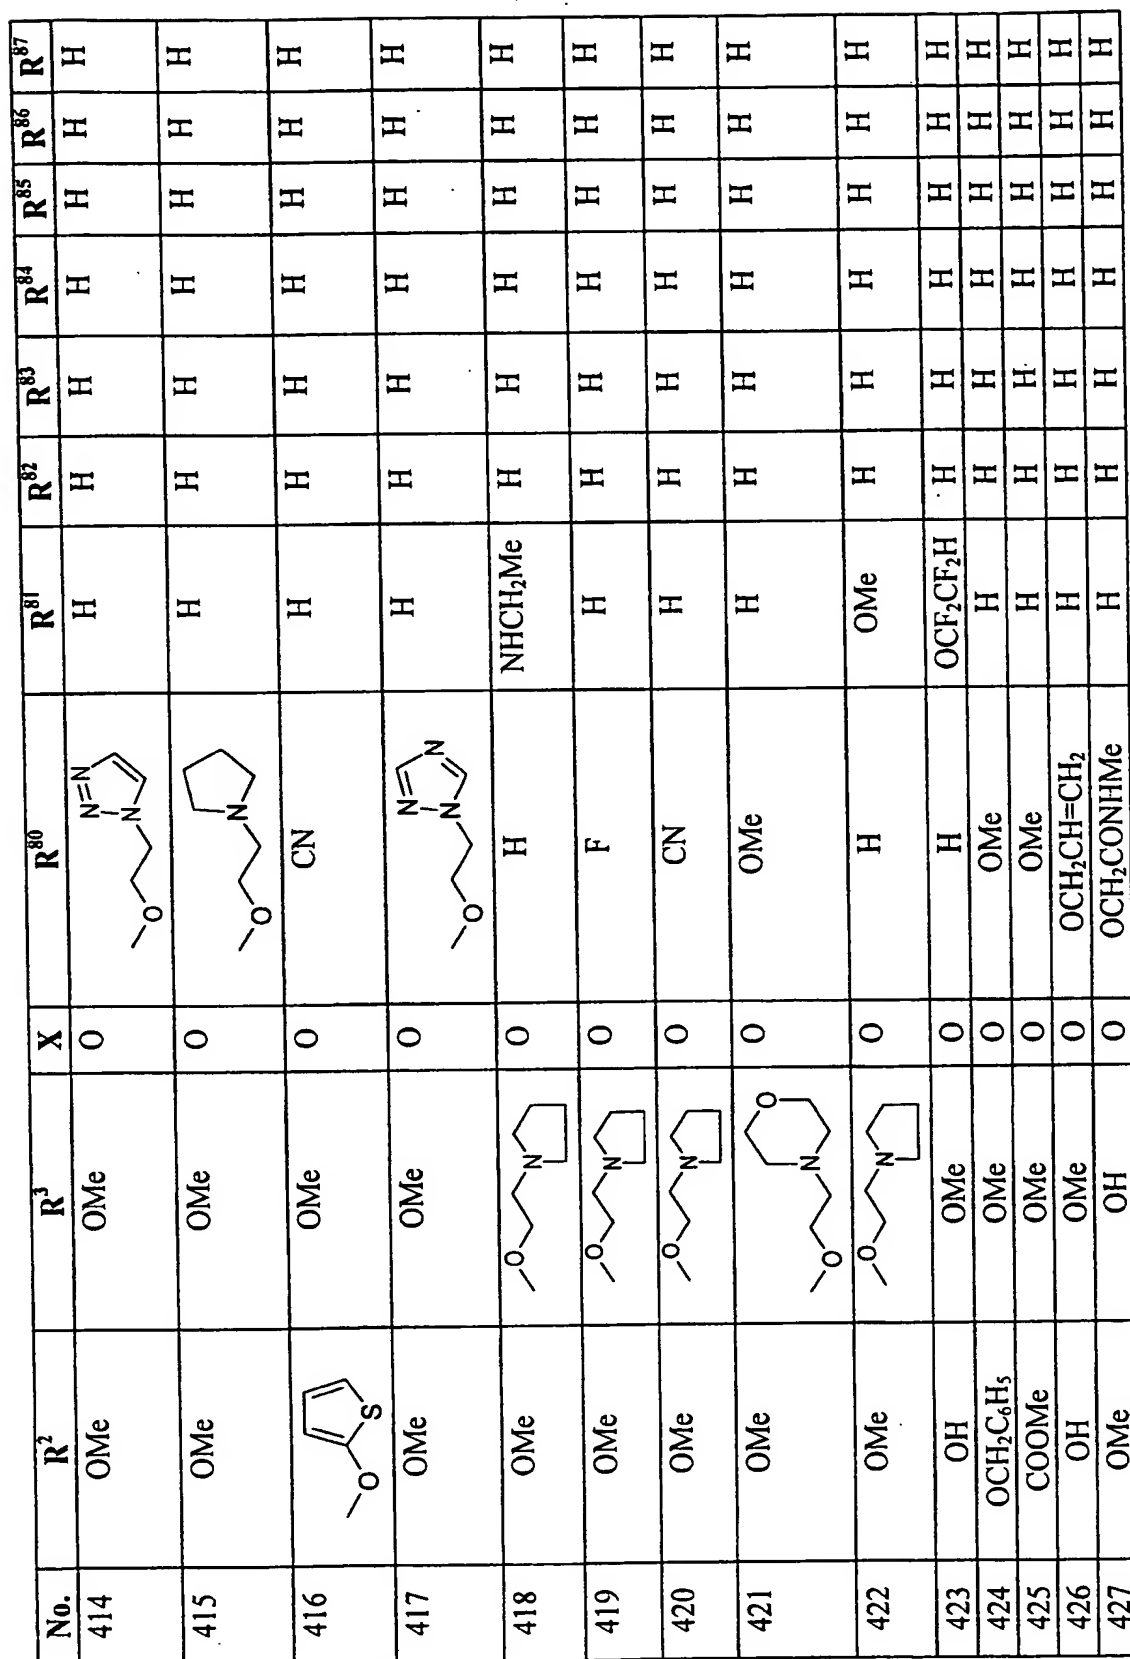 No. R² R³ X R⁸⁰ R⁸¹ R⁸² R⁸³ R⁸⁴ R⁸⁵ R⁸⁶ R⁸⁷
414 OMe OMe O O N N=N H H H H H H H H
415 OMe OMe O O N H H H H H H H
416 O S OMe O CN H H H H H H H
417 OMe OMe O O N N N H H H H H H H
418 OMe O N O H NHCH₂Me H H H H H H
419 OMe O N O F H H H H H H H
420 OMe O N O CN H H H H H H H
421 OMe O N O O OMe H H H H H H H
422 OMe O N O H OMe H H H H H H
423 OH OMe O H OCF₂CF₂H H H H H H H
424 OCH₂C₆H₅ OMe O OMe H H H H H H H
425 COOMe OMe O OMe H H H H H H H
426 OH OMe O OCH₂CH=CH₂ H H H H H H H
427 OMe OH O OCH₂CONHMe H H H H H H H